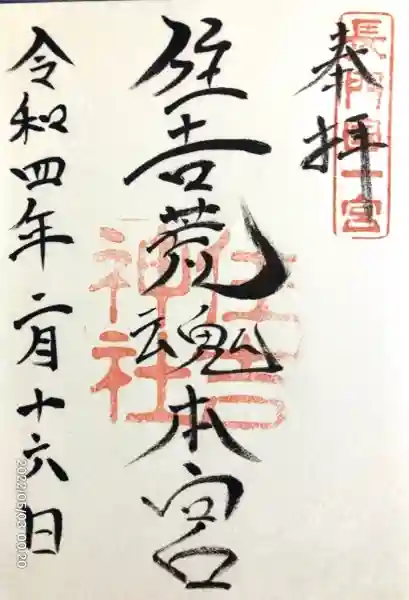 奉拝
長門國一宮
住吉荒魂本宮
住吉神社
令和四年二月十六日